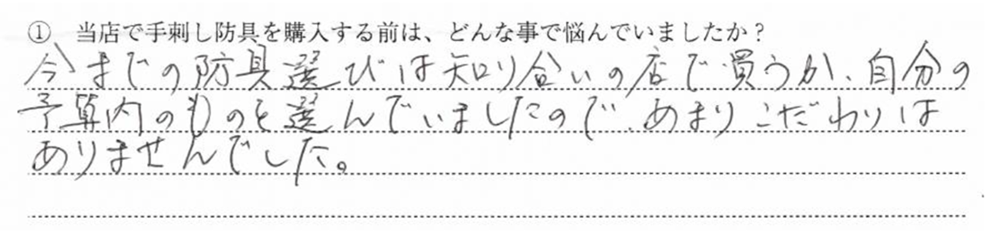 ① 当店で手刺し防具を購入する前は、どんな事で悩んでいましたか？
今までの防具選びは知り合いの店で買うか、自分の
予算内のものを選んでいましたので、あまりこだわりは
ありませんでした。